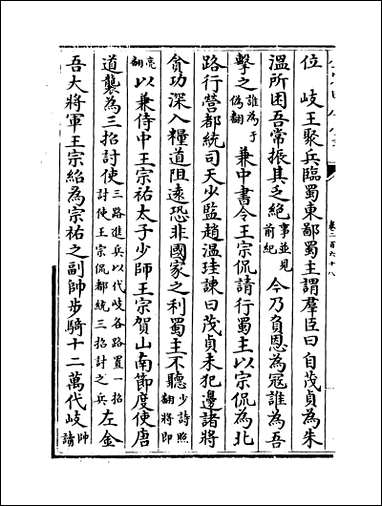 位　岐王聚兵臨蜀東鄙蜀主謂羣臣曰自茂貞為朱
溫所困吾常振其乏絶事並見前紀今乃負恩為寇誰為吾
擊之誰為于偽翻兼中書令王宗侃請行蜀主以宗侃為北
路行營都統司天少監趙溫珪諫曰茂貞未犯邊諸將
貪功深入糧道阻遠恐非國家之利蜀主不聽少詩照翻將即
亮翻以兼侍中王宗祐太子少師王宗賀山南節度使唐
道襲為三招討使三路進兵以伐岐各路置一招討使王宗侃都統三招討之兵左金
吾大將軍王宗紹為宗祐之副帥步騎十二萬伐岐帥讀
卷二百六十八